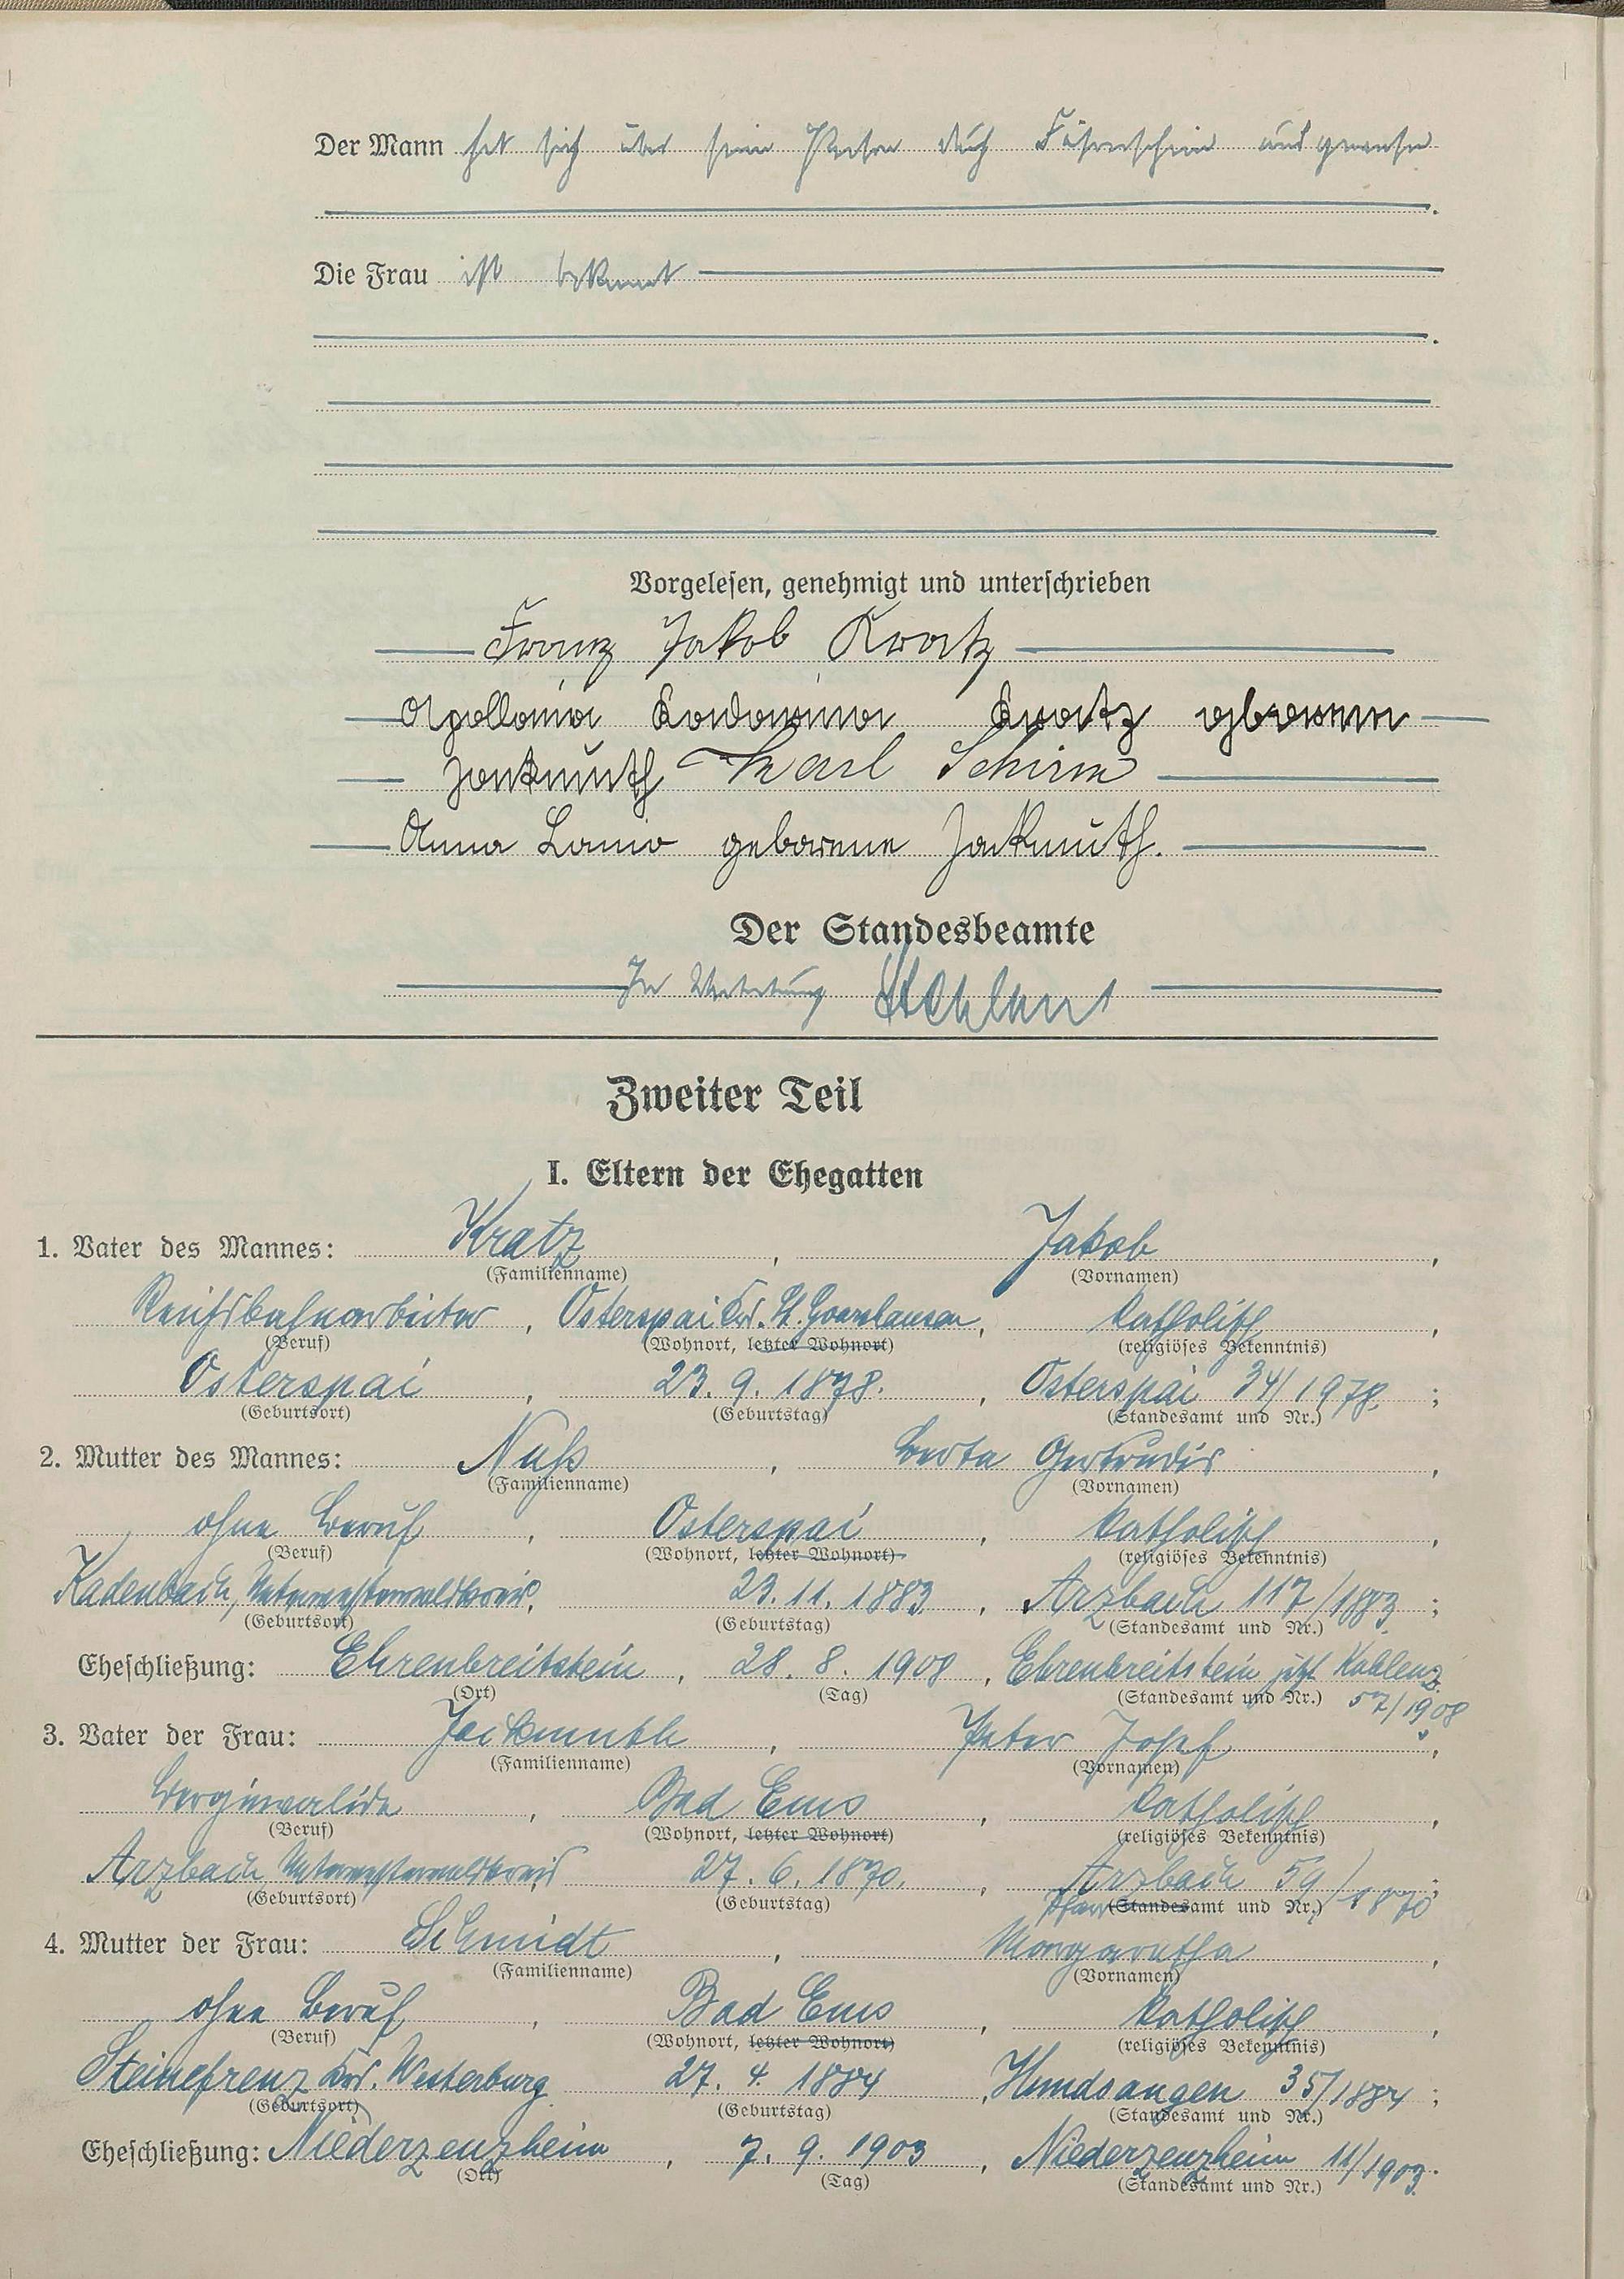 Der Mann hat sich über seine Person durch Führerschein ausgewiesen
.
Die Frau ist bekannt
.
Vorgelesen, genehmigt und unterschrieben
Franz Jakob Kratz
Apollonia Katharina Kratz geborenen
Jackmuth Karl Schirm
Anna geborene Jackmuth.
Der Standesbeamte
In Vertretung
Zweiter Teil
I. Eltern der Ehegatten
1. Vater des Mannes: Kratz, Jakob,
(Familienname) (Vornamen)
Reichsbahnarbeiter, Osterspai Krs. St. Goarshausen, katholisch,
(Beruf) (Wohnort, letzter Wohnort) (religiöses Bekenntnis)
Osterspai, 23. 9. 1878., Osterspai 34/1978.;
(Geburtsort) (Geburtstag) (Standesamt und Nr.)
2. Mutter des Mannes: Nuß, Berta Gertrudis,
(Familienname) (Vornamen)
ohne Beruf, Osterspai, katholisch,
(Beruf) (Wohnort, letzter Wohnort) (religiöses Bekenntnis)
Kadenbach, Unterwesterwaldkreis, 23. 11. 1883, Arzbach 117/1883.;
(Geburtsort) (Geburtstag) (Standesamt und Nr.)
Eheschließung: Ehrenbreitstein, 28. 8. 1908, Ehrenbreitstein jetzt Koblenz
(Ort) (Tag) (Standesamt und Nr.) 57/1908
3. Vater der Frau: Jackmuth, Peter Josef,
(Familienname) (Vornamen)
Berginvalide, Bad Ems, katholisch,
(Beruf) (Wohnort, letzter Wohnort) (religiöses Bekenntnis)
Arzbach Unterwesterwaldkreis, 27. 6. 1870., Arzbach 59/1870;
(Geburtsort) (Geburtstag) Pfarr (Standesamt und Nr.)
4. Mutter der Frau: Schmidt, Margaretha,
(Familienname) (Vornamen)
ohne Beruf, Bad Ems, katholisch,
(Beruf) (Wohnort, letzter Wohnort) (religiöses Bekenntnis)
Steinefrenz Krs. Westerburg 27. 4. 1884, Hundsangen 35/1884;
(Geburtsort) (Geburtstag) (Standesamt und Nr.)
Eheschließung: Niederzeuzheim, 7. 9. 1903, Niederzeuzheim 11/1903.
(Ort) (Tag) (Standesamt und Nr.)